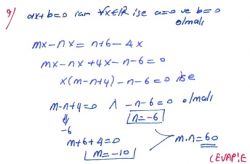 9) ax+b=0 ıcın ∀x∈ℝ ise a=0 ve b=0
olmalı
mx-nx=n+6-4x
mx-nx+4x-n-6=0
x(m-n+4)-n-6=0 ise
m-n+4=0 ∧ -n-6=0 olmalı
-6 n=-6
m+6+4=0 m.n=60
m=-10
CEVAP:E